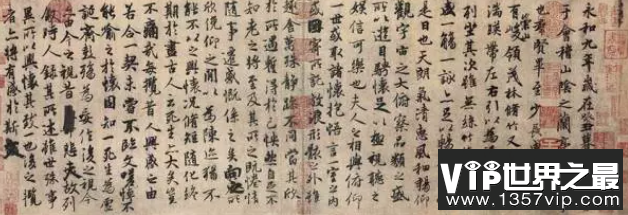 永和九年歲在癸丑
于會稽山陰之蘭亭
也群賢畢至少長咸
有峻領茂林脩竹又
湍暎帶左右引以為
列坐其次雖無絲竹
盛一觴一詠亦足以暢
是日也天朗氣清惠風和暢仰
觀宇宙之大俯察品類之盛
所以遊目騁懷足以極視聽之
娛信可樂也夫人之相與俯仰
一世或取諸懷抱悟言一室之內
或因寄所託放浪形骸之外雖
趣舍萬殊靜躁不同當其欣
於所遇蹔得於己怏然自足不
知老之將至及其所之既惓情
隨事遷感慨係之矣向之所
欣俛仰之閒以為陳迹猶不
能不以之興懷況脩短隨化終
期於盡古人云死生亦大矣豈
不痛哉每攬昔人興感之由
若合一契未嘗不臨文嗟悼不
能喻之於懷固知一死生為虛
誕齊彭殤為妄作後之視今
亦由今之視昔悲夫故列
敘時人錄其所述雖世殊事
異所以興懷其致一也後之攬
者亦將有感於斯文
VIP世界之最
www.1357vip.com